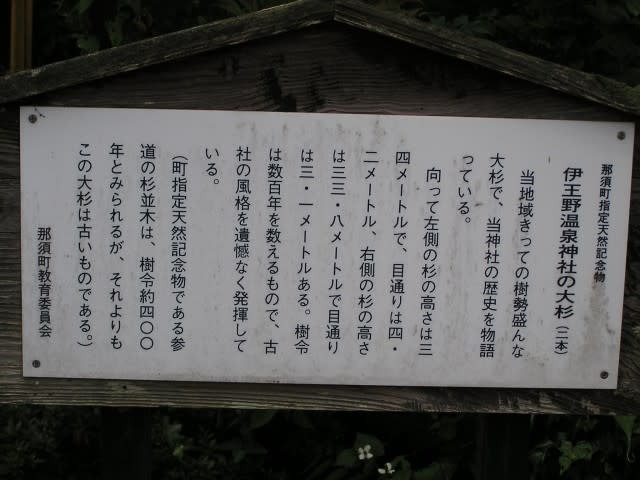 那須町指定天然記念物
伊王野温泉神社の大杉(二本)
当地域きっての樹勢盛んな
大杉で、当神社の歴史を物語
っている。
向って左側の杉の高さは三
四メートルで、目通りは四・
二メートル、右側の杉の高さ
は三三・八メートルで目通り
は三・一メートルある。樹令
は数百年を数えるもので、古
社の風格を遺憾なく発揮して
いる。
(町指定天然記念物である参
道の杉並木は、樹令約四〇〇
年とみられるが、それよりも
この大杉は古いものである。)
那須町教育委員会